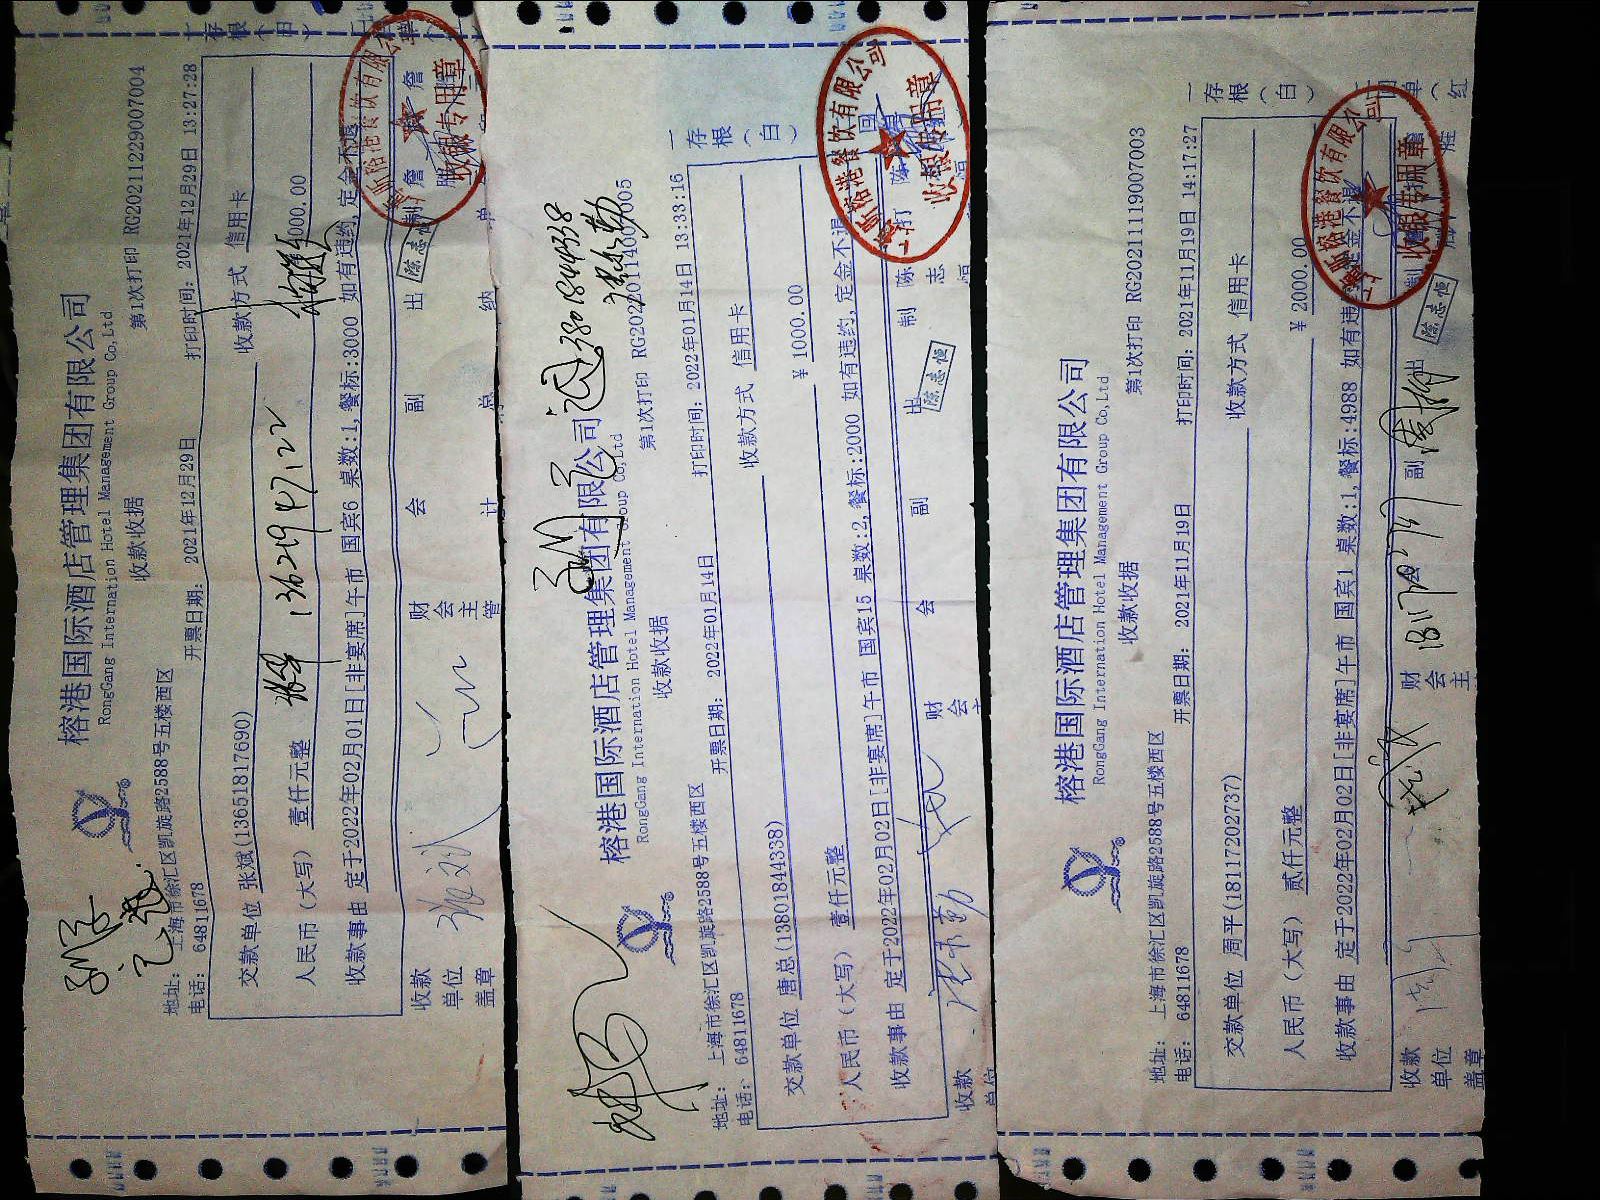 榕港国际酒店管理集团有限公司
RongGang International Hotel Management Group Co,Ltd
收款收据
第1次打印 RG20211229007004
地址: 上海市徐汇区凯旋路2588号五楼西区
电话: 64811678
开票日期: 2021年12月29日
打印时间: 2021年12月29日 13:27:28
交款单位 张斌(13651817690)
收款方式 信用卡
人民币(大写) 壹仟元整
收款事由 定于2022年02月01日[非宴席]午市 国宾6 桌数:1,餐标:3000 如有违约,定金不退
收款单位盖章
财会主管
会计
副总
出纳
制单
陈志恒
收银专用章
一存根(白)
榕港国际酒店管理集团有限公司
RongGang International Hotel Management Group Co,Ltd
13801844338
收款收据
第1次打印 RG20220114007005
地址: 上海市徐汇区凯旋路2588号五楼西区
电话: 64811678
开票日期: 2022年01月14日
打印时间: 2022年01月14日 13:38:16
交款单位 唐总(13801844338)
收款方式 信用卡
人民币(大写) 壹仟元整
¥ 1000.00
收款事由 定于2022年02月02日[非宴席]午市 国宾15 桌数:2,餐标:2000 如有违约,定金不退
收款单位
财会
会
副
出
制
陈志恒
陈志恒
一存根(白)
榕港国际酒店管理集团有限公司
RongGang International Hotel Management Group Co,Ltd
收款收据
第1次打印 RG20211119007003
地址: 上海市徐汇区凯旋路2588号五楼西区
电话: 64811678
开票日期: 2021年11月19日
打印时间: 2021年11月19日 14:17:27
交款单位 周平(18117202737)
收款方式 信用卡
人民币(大写) 贰仟元整
¥ 2000.00
收款事由 定于2022年02月02日[非宴席]午市 国宾1 桌数:1,餐标:4988 如有违
收款单位盖章
财会主
副
出
陈志恒
一存根(白)